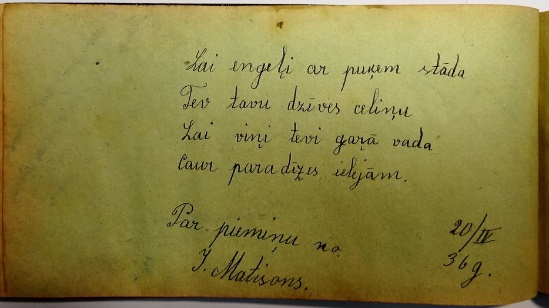 Lai engeļi ar puķem stāda
Tev tavu dzīves celiņu
Lai viņi tevi gaŗā vada
Caur paradīzes ielejām.
Par piemiņu no
J. Matisons.
20/IV
36 g.